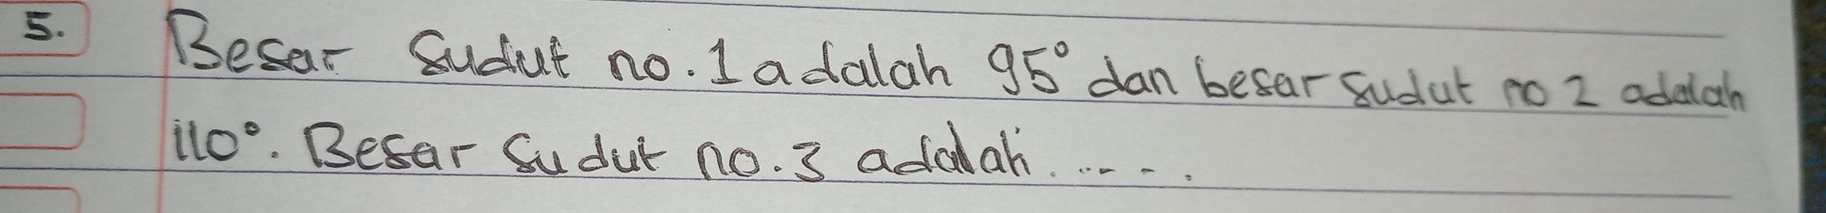 5. Besar Sudut no. 1 adalah 95° dan besar sudut no 2 adalah
110°. Besar Sudut no. 3 adalah.....